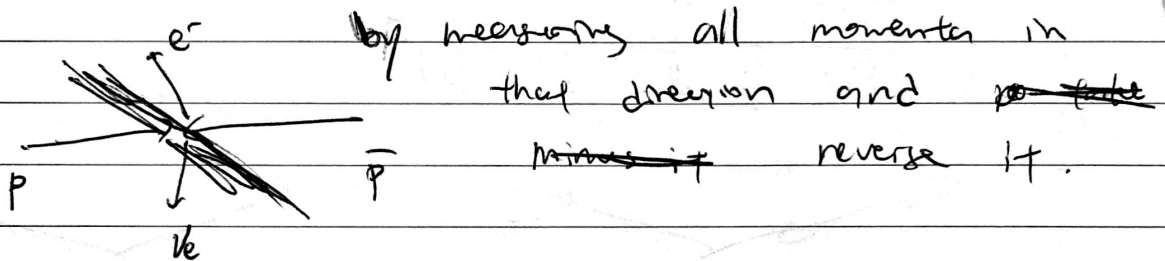 e⁻ by measuring all momenta in
that direction and
p p̄ reverse it.
νe